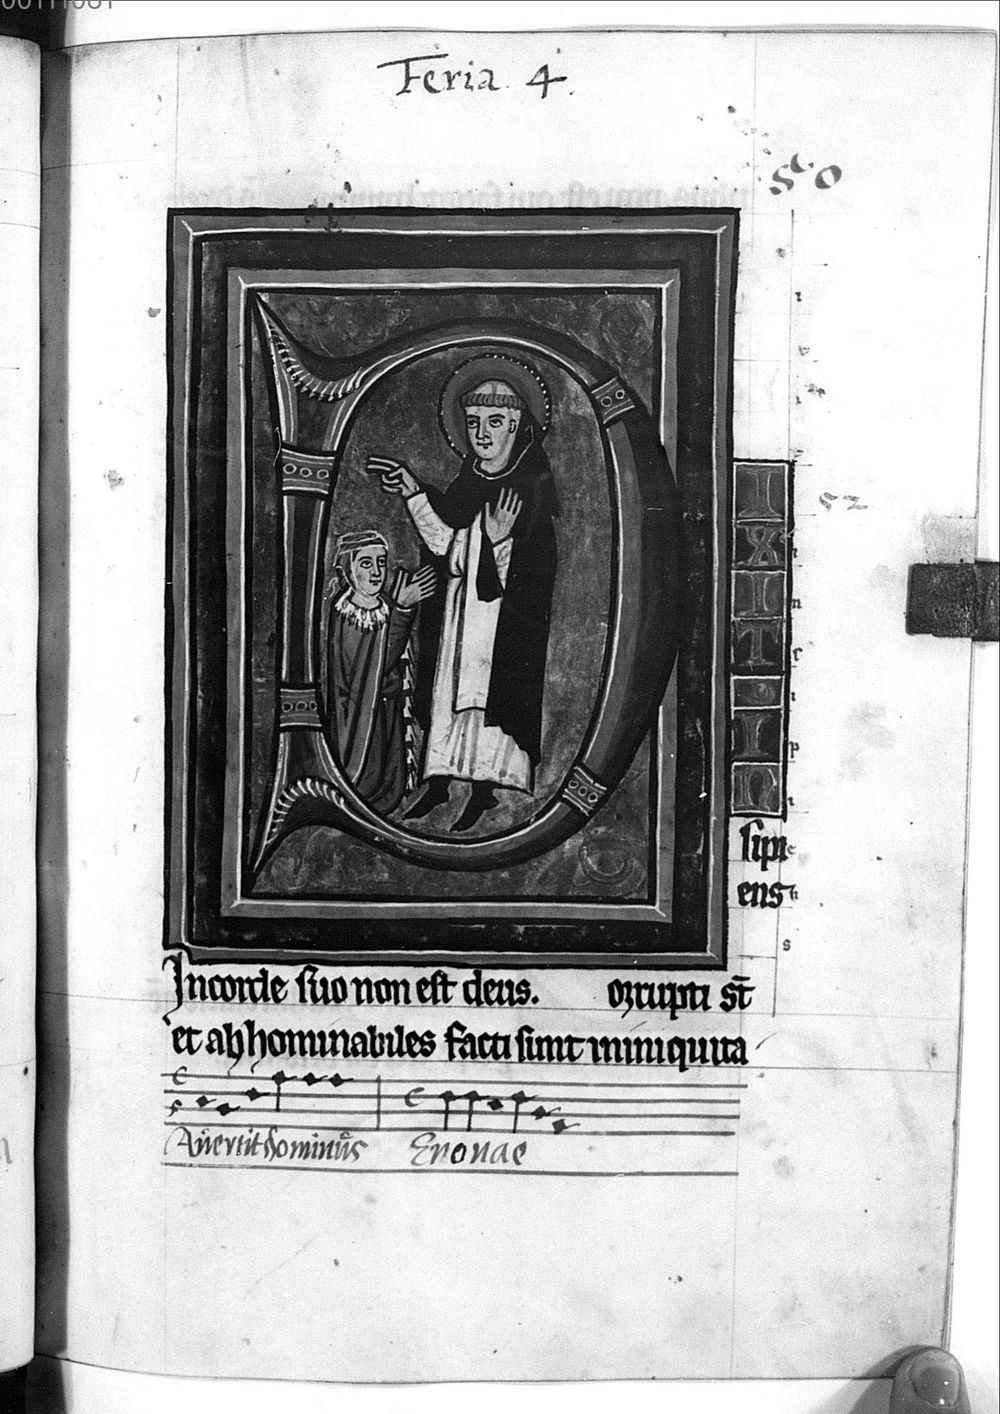 00111081
Feria. 4.
50
52
D
I
X
I
T
I
N
sipi
ens
s
In corde suo non est deus. orrupti st̄
et abhominabiles facti sunt in iniquita
Avertit dominus Evovae